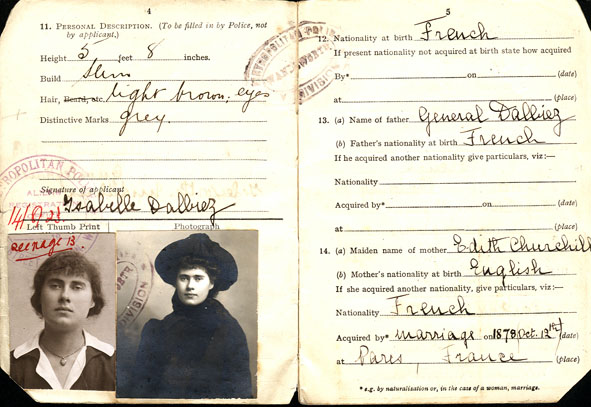 4
11. PERSONAL DESCRIPTION. (To be filled in by Police, not
by applicant.)
Height 5 feet 8 inches.
Build Slim
Hair, Beard, etc. light brown, eyes
Distinctive Marks grey.
METROPOLITAN POLICE
Signature of applicant
Isabelle Dalbiez
Left Thumb Print Photograph
teenage 13.
DIVISION
5
METROPOLITAN POLICE
DIVISION
12. Nationality at birth French
If present nationality not acquired at birth state how acquired
By* on (date)
at (place)
13. (a) Name of father General Dalbiez
(b) Father's nationality at birth French
If he acquired another nationality give particulars, viz:—
Nationality
Acquired by* on (date)
at (place)
14. (a) Maiden name of mother Edith Churchill
(b) Mother's nationality at birth English
If she acquired another nationality, give particulars, viz:—
Nationality French
Acquired by* marriage on 1879, Oct. 12th (date)
at Pares, France (place)
* e.g. by naturalisation or, in the case of a woman, marriage.